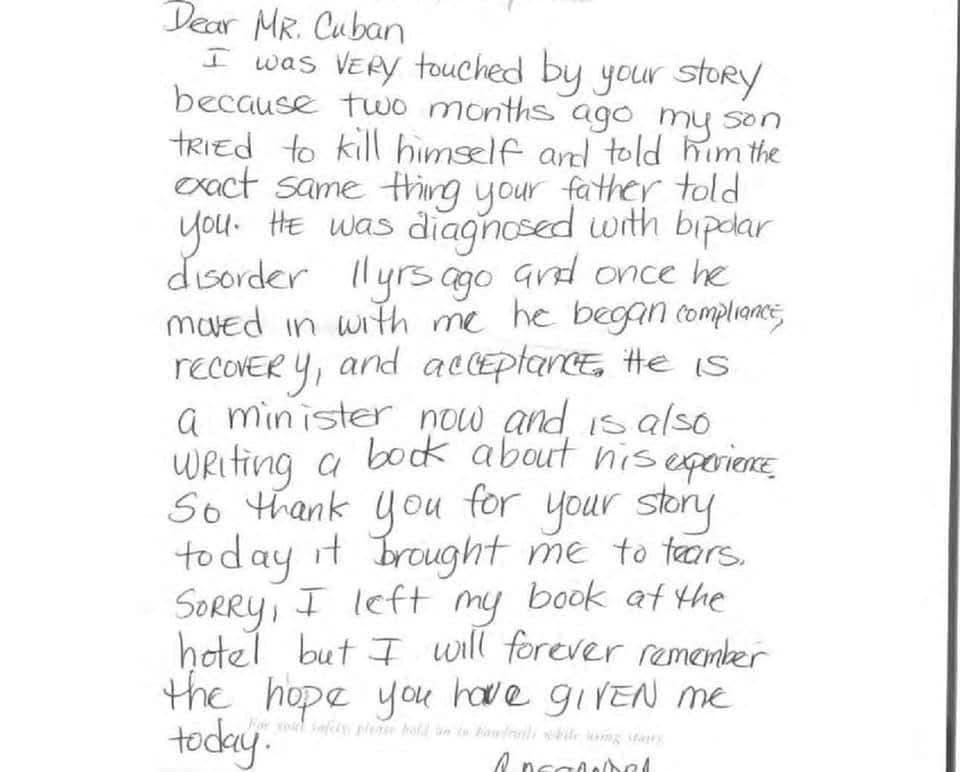 Dear MR. Cuban
I was VERY touched by your stoRy
because two months ago my son
tRIEd to kill himself and told him the
exact same thing your father told
you. HE was diagnosed with bipolar
disorder 11 yrs ago and once he
movEd in with me he began compliance,
recovERy, and accEptancE. He is
a minister now and is also
WRiting a book about his experience.
So thank you for your story
today it brought me to tears.
SoRRy, I left my book at the
hotel but I will forever remember
the hope you have gIVEN me
For your safety, please hold on to handrails while using stairs
today.